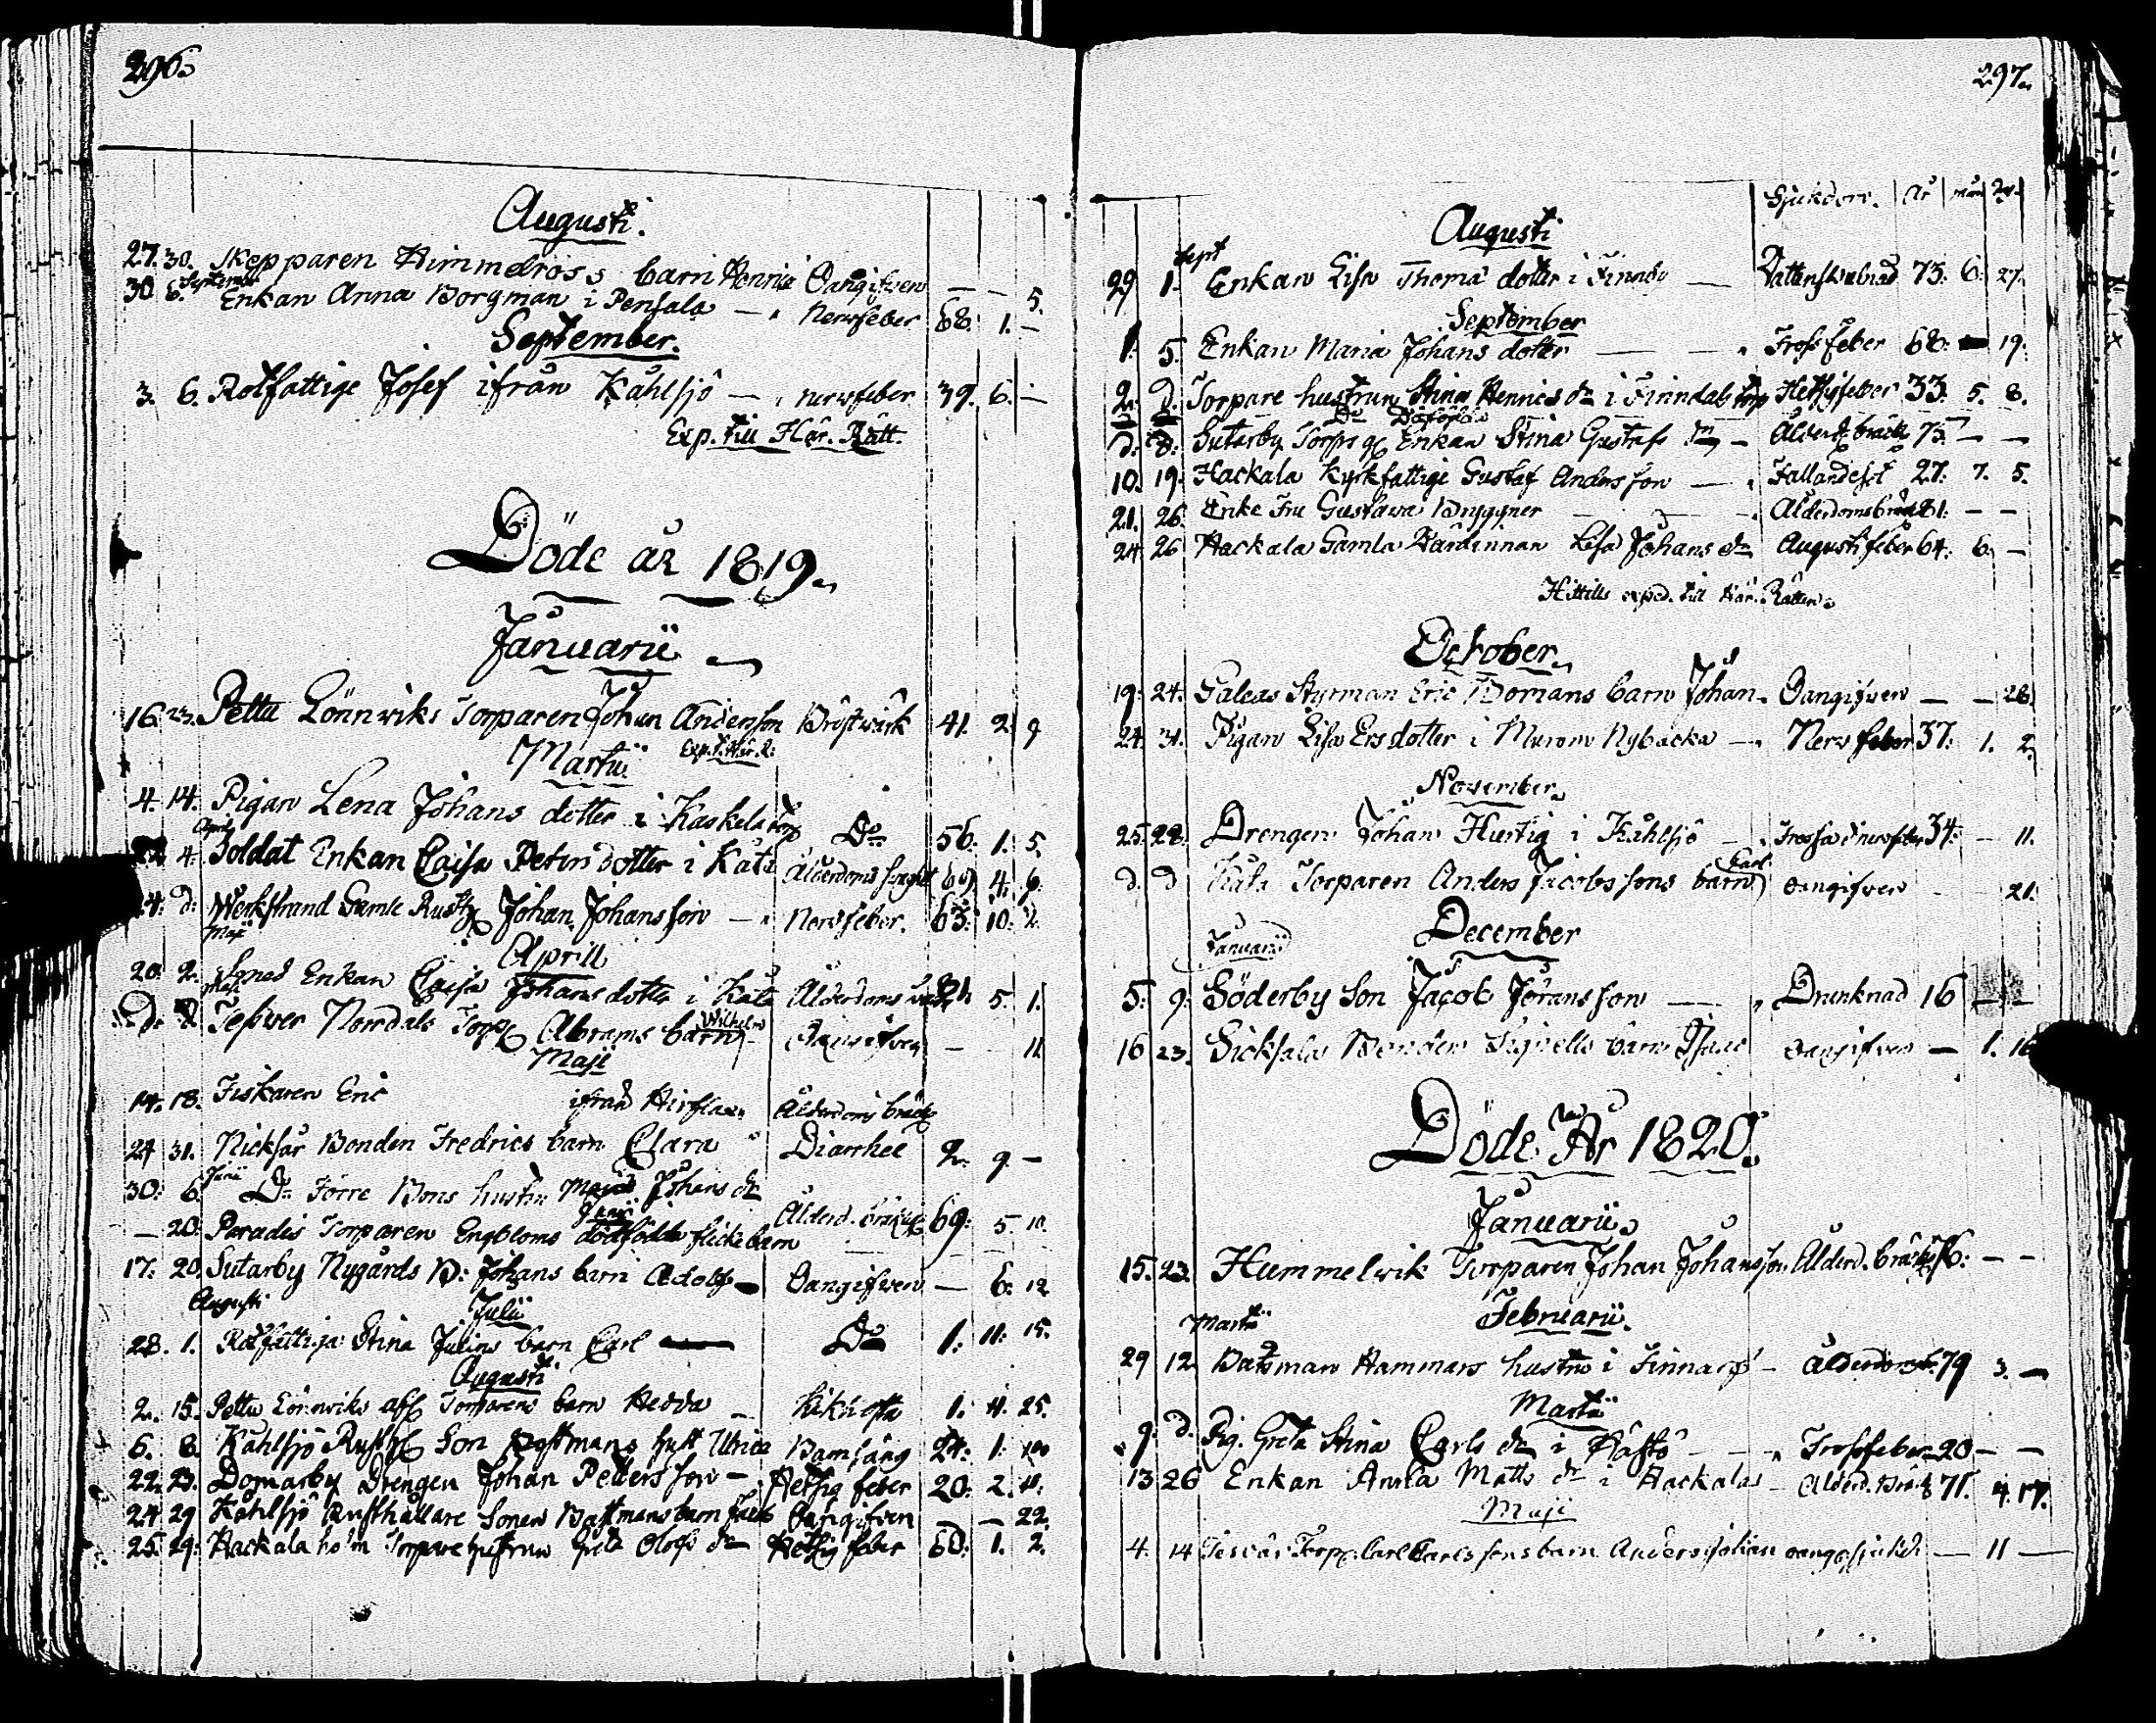 296.
Augusti.
27. 30. Skepparen Himmelross barn Henric Oangifven — — 5.
30. 6. September Enkan Anna Borgman i Pensala — Nervfeber 68. 1. —
September.
3. 6. Rotfattige Josef ifrån Kåhlsjö — nervfeber 39. 6. —
Exp. till Här. Rätt.
Döde år 1819.
Januarii
16. 23. Pettu Lönnviks Torparen Johan Anderson Bröstwärk 41. 2. 9
Martii Exp. t. Här. R.
4. 14. Pigan Lena Johans dotter i Kaskela torp Do 56. 1. 5.
April
4. Soldat Enkan Caisa Peters dotter i Kåla Ålderdoms 4. 6.
24. d. Werkstrand Gamle Rusth Johan Johansson — Nervfeber. 63. 10. 2.
Aprill
Maji
20. 2. Enkan Caisa Johans dotter i Kåla Ålderdoms 81. 5. 1.
D. D Norrdals Torp Abrams barn Wilhelm Oangifven — — 11
Maji
14. 18. Fiskaren Eric ifrån Ålderdoms bräck
24 31. Nicksår Bonden Fredrics barn Clara Diarrhee 2. 9. —
Junii
30. 6. Do Förre Bons hustru Maria Johans dr Ålderd. bräckl 69: 5. 10.
Junii
— 20. Paradis Torparen Engbloms dödfödda flickebarn
17. 20. Sutarby Nygårds B: Johans barn Adolf Oangifven — 6. 12
Julii
Augusti
28. 1. Rotfattiga Stina Julins barn Carl Do 1. 11. 15.
Augusti
2. 15. Pettu Lönnviks Torparens barn Hedda — Kikhosta 1. 4. 25.
6. 8. Kåhlsjö Rusth Son hust Ulrica Barnsäng 24. 1.
22. 23. Domarby Drengen Johan Pettersson — Hetsig feber 20. 2. 11.
24 29 Kåhlsjö Rusthållare Sonen barn Oangifven — — 22.
25. 29. Hackala holm Torpare hustrun Greta Olofs dr Hetsig feber 60. 1. 2.
297.
Sjukdom. År mån
Augusti
Sept
29 1. Enkan Lisa Thomä dotter i Finnäby — 73. 6. 27.
September
1. 5. Enkan Maria Johans dotter — — Frossfeber 68. — 19.
2. D. Torpare hustrun Stina Henrics dr i Finndals torp Hetsigfeber 33. 5. 8.
D: D: Sutarby Torps Enkan Stina Gustafs dr — Ålderd. bräckl 75. — —
10. 19. Hackala Kyrkfattige Gustaf Andersson — Fallandesot 27. 7. 5.
21. 26. Enke Fru Gustava Bryggner — Ålderdomsbräck 81. — —
24 26 Hackala Gamla Värdinnan Lisa Johans dr Augustifeber 64. 6. —
Hittills exped. till Här. Rätten.
October.
19. 24. Galeas Styrman Eric Bomans barn Johan Oangifven — — 26.
24. 31. Pigan Lisa Ersdotter i Murom Nybacka — Nervfeber 37. 1. 2.
November.
25. 28. Drengen Johan Hurtig i Kåhlsjö — 34. — 11.
d. d Kåla Torparen Anders Jacobssons barn Carl oangifven — — 21.
December
Januarii
5. 9. Söderby Son Jacob Göransson — Drunknad 16 — —
16 23. Sicksala Bonden Signells barn Isaac oangifven — 1. 16
Döde År 1820.
Januarii
15. 23. Hummelvik Torparen Johan Johansson Ålderd. bräckl — —
Februarii.
Martii
29 12 Båtsman Hammars hustru i Finnarp — Ålderdomsb. 79 3. —
Martii
9. d. Pig. Greta Stina Carls dr i — Frossfeber 20 — —
13 26 Enkan Anna Matts dr i Hackala — Ålderd. Bräckl 71. 4. 17.
Maji
4. 14 Torp. Carl Carlssons barn Anders Julian — 11 —